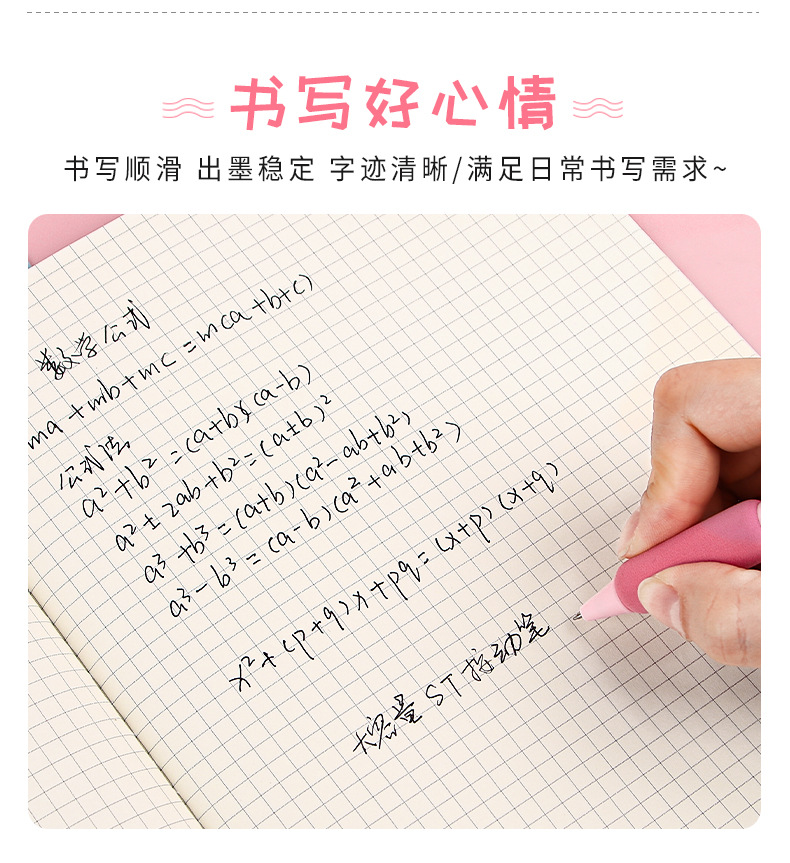 书写好心情
书写顺滑 出墨稳定 字迹清晰/满足日常书写需求~
数学公式
ma+mb+mc=m(a+b+c)
公式法
a²+b²=(a+b)(a-b)
a²±2ab+b²=(a±b)²
a³+b³=(a+b)(a²-ab+b²)
a³-b³=(a-b)(a²+ab+b²)
x²+(p+q)x+pq=(x+p)(x+q)
大容量ST按动笔